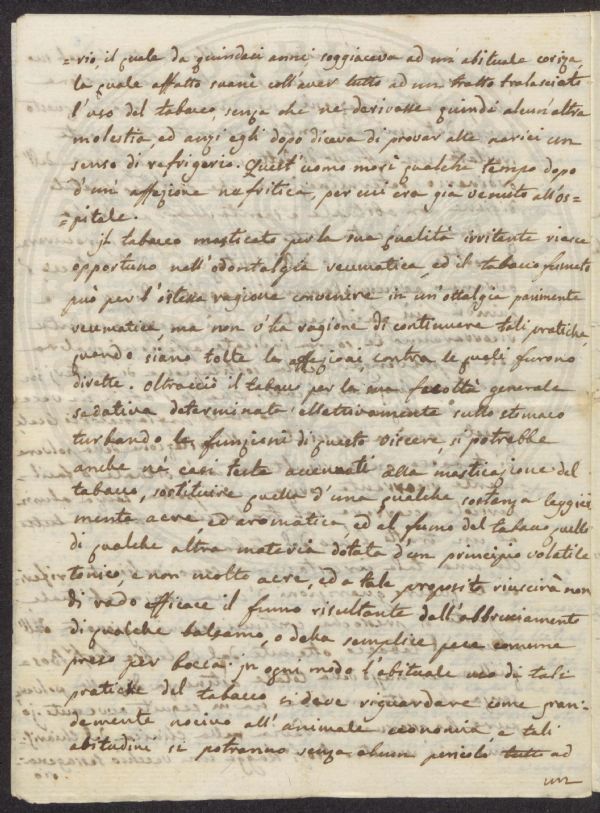 =rio, il quale da quindici anni soggiaceva ad un'abituale coriza,
la quale affatto svanì coll'aver tutto ad un tratto tralasciato
l'uso del tabacco, senza che ne derivasse quindi alcun'altra
molestia, ed anzi egli dopo diceva di provar alle narici un
senso di refrigerio. Quest'uomo morì qualche tempo dopo
d'un'affezione nefritica, per cui era già venuto all'os=
=pitale.
Il tabacco masticato per la sua qualità irritante riesce
opportuno nell'odontalgia reumatica, ed il tabacco fumato
può per l'istessa ragione convenire in un'ottalgia parimente
reumatica, ma non v'ha ragione di continuare tali pratiche,
quando siano tolte le affezioni contro le quali furono
dirette. Oltracciò il tabacco per la sua facoltà generale
sedativa determinata elettivamente sullo stomaco
turbando le funzioni di questo viscere, si potrebbe
anche ne' casi testè accennati alla masticazione del
tabacco, sostituire quella d'una qualche sostanza leggier
mente acre, ed aromatica, ed al fumo del tabacco quello
di qualche altra materia dotata d'un principio volatile
tonico, e non molto acre, ed a tale proposito riuscirà non
di rado efficace il fumo risultante dall'abbruciamento
di qualche balsamo, o della semplice pece comune
preso per bocca. In ogni modo l'abituale uso di tali
pratiche del tabacco si deve riguardare come gran=
demente nocivo all'animale economia, e tali
abitudini si potranno senza alcun pericolo tutto ad
un